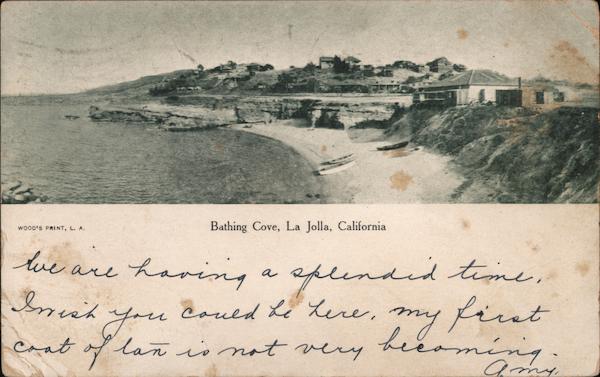 WOOD'S PRINT, L. A.
Bathing Cove, La Jolla, California
We are having a splendid time.
I wish you could be here, my first
coat of tan is not very becoming.
Amy.